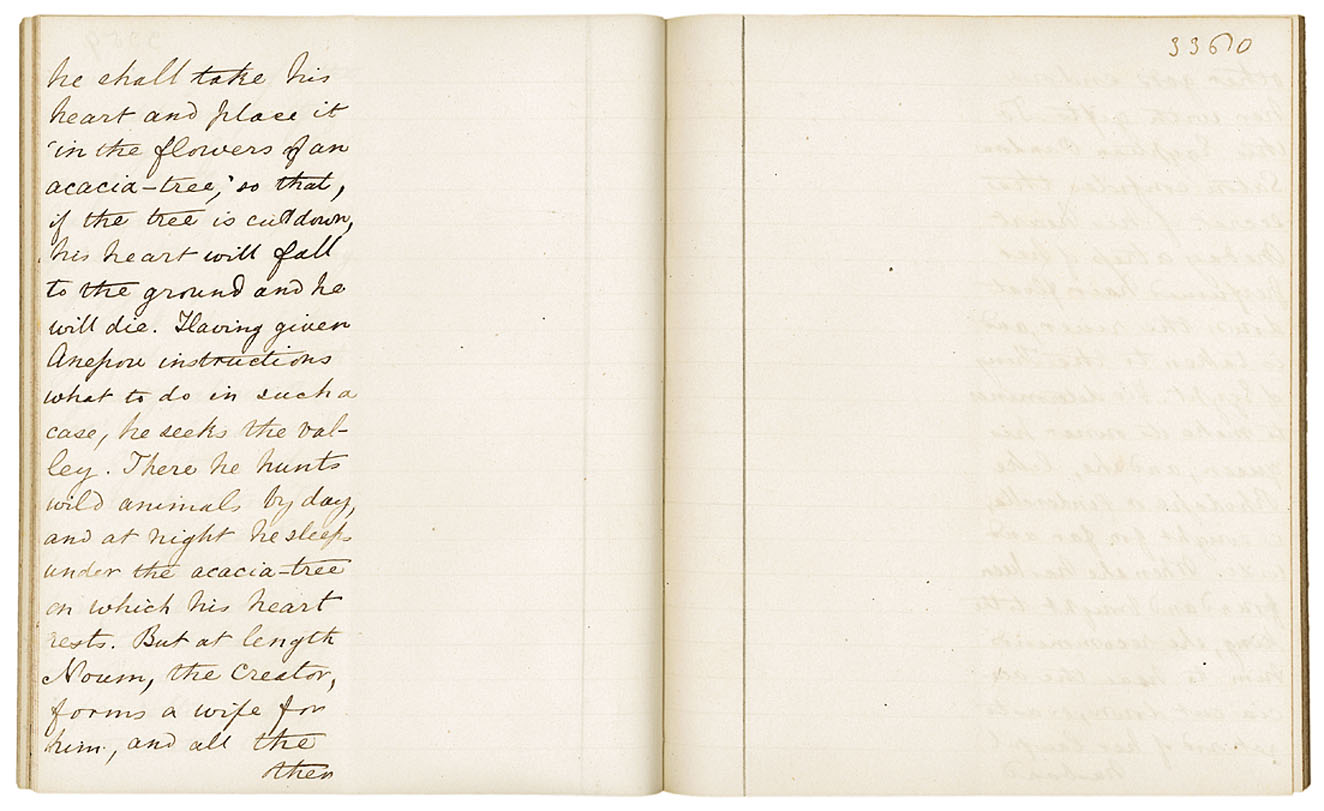 he shall take his
heart and place it
'in the flowers of an
acacia-tree,' so that,
if the tree is cut down,
his heart will fall
to the ground and he
will die. Having given
Anepou instructions
what to do in such a
case, he seeks the val-
ley. There he hunts
wild animals by day,
and at night he sleeps
under the acacia-tree
on which his heart
rests. But at length
Noum, the Creator,
forms a wife for
him, and all the
other
3360